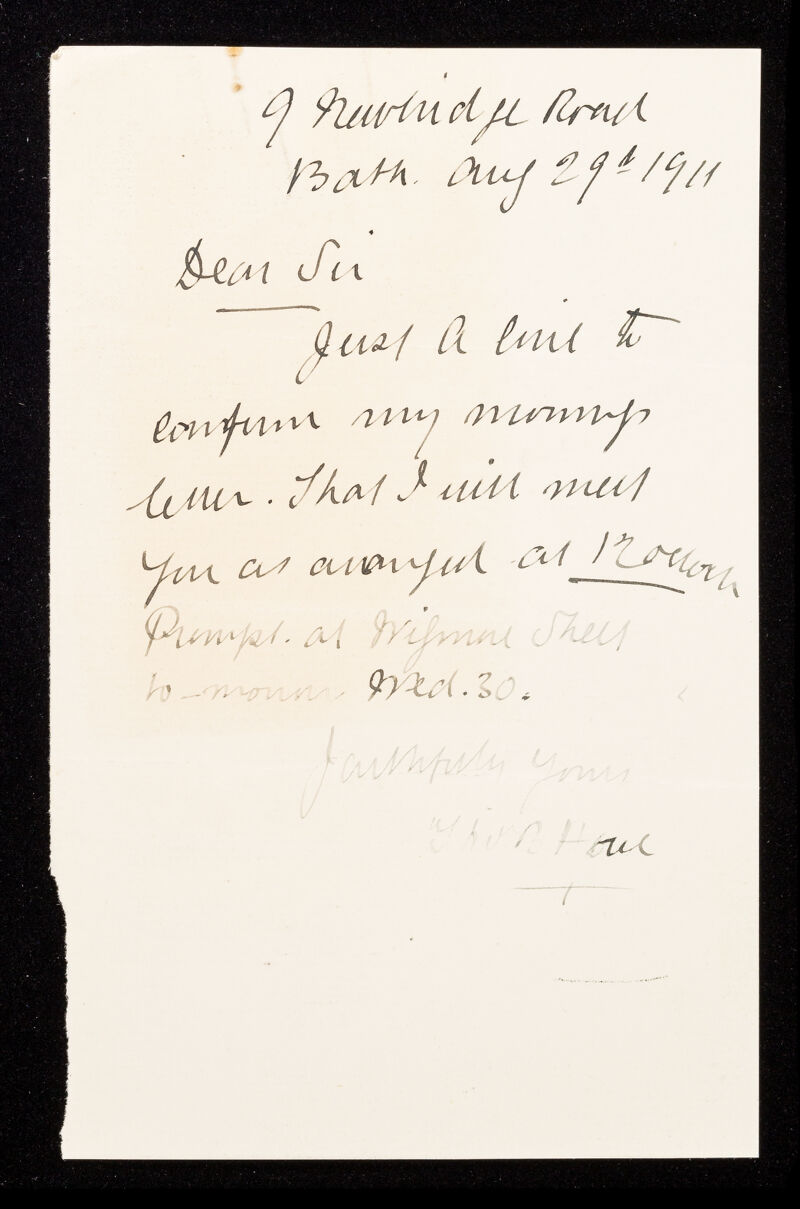 9 Newbridge Road
Bath. Aug 29th 1911
Dear Sir
Just a line to
confirm my mornings
letter. That I will meet
you as arranged at 12 oclock
Prompt. at Wigmore Street
to-morrow Wed. 30.
Faithfully Yours
Thos B